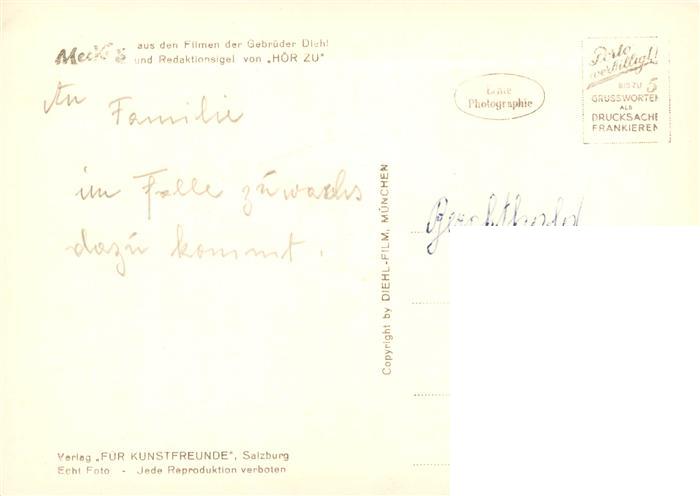 Mecki's
aus den Filmen der Gebrüder Diehl
und Redaktionsigel von „HÖR ZU“
Echte
Photographie
Porto
verbilligt!
BIS ZU 5
GRUSSWORTEN
ALS
DRUCKSACHE
FRANKIEREN
An
Familie
im Falle zuwachs
dazu kommt.
Copyright by DIEHL-FILM, MÜNCHEN
Verlag „FÜR KUNSTFREUNDE“, Salzburg
Echt Foto - Jede Reproduktion verboten